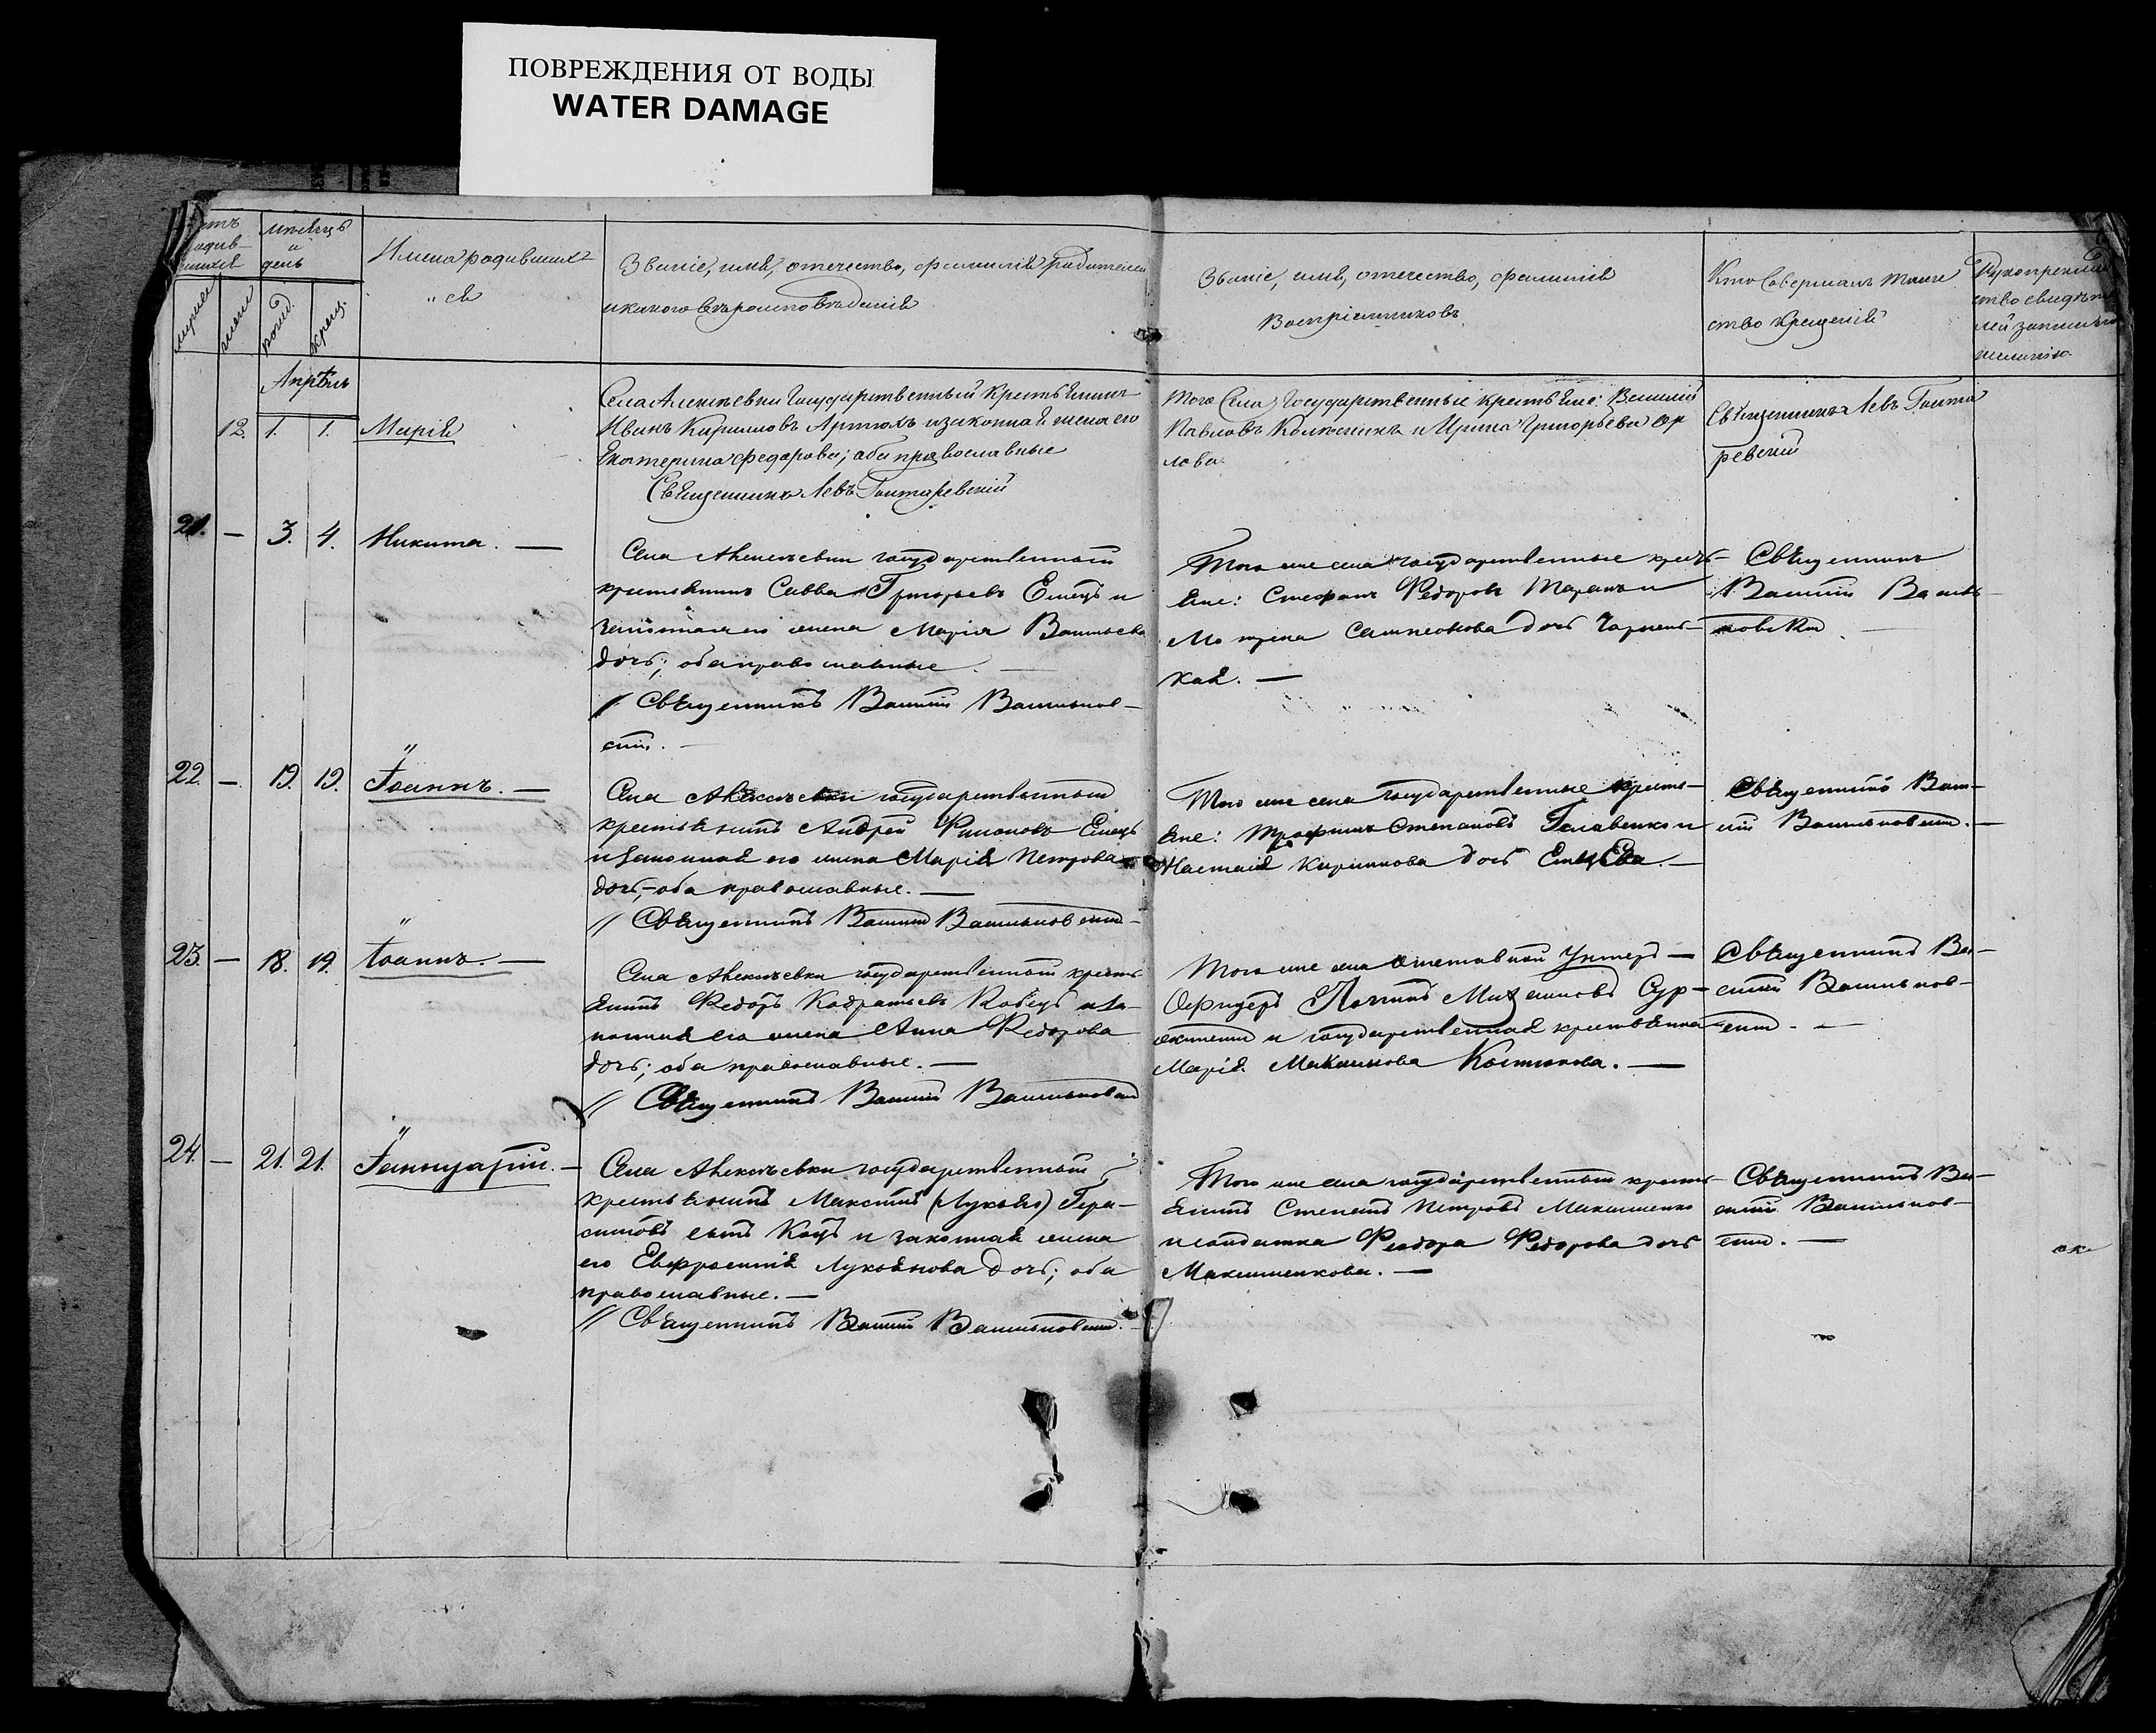 ПОВРЕЖДЕНИЯ ОТ ВОДЫ
WATER DAMAGE
мѣсяцъ
и
день
Имена родивших
ся
Званіе, имя, отечество, фамилія родителей
и какого вѣроисповѣданія
Званіе, имя, отечество, фамилія
Воспріемниковъ
Кто Совершалъ таин
ство крещенія
Рукоприклад
ство свидѣте
лей записи по
желанію.
рожд.
крещ.
Апрѣль
12. 1. 1. Марія
Села Алексѣевки Государственный Крестьянинъ
Иванъ Кириловъ Артюхъ и законная жена его
Екатерина Федорова; оба православные
Священникъ Левъ
Того Села Государственные крестьяне: Василий
Павловъ и Ирина Григорьева Ор
лова.
Священникъ Левъ
ревскій
21. — 3. 4. Никита. —
Села Алексѣевки государственный
крестьянинъ Савва Григорьевъ Емецъ и
законная его жена Марія Васильева
дочь; оба православные —
// Священникъ Василій Васильков-
скій.
Того же села государственные кресть-
яне: Стефанъ Федоровъ Таранъ и
Матрена Сампсонова дочь Чорнень-
кая. —
Священникъ
Василій Василь-
ковскій —
22. — 19. 19. Іоаннъ. —
Села Алексѣевки государственный
крестьянинъ Андрей Филоновъ Емецъ
и законная его жена Марія Петрова
дочь,-оба православные. —
// Священникъ Василій Васильковскій-
Того же села государственные кресть-
яне: Трофимъ Степановъ Галавенко и
Настасія Кирилова дочь Емцева. —
Священникъ Васи-
лій Васильковскій. —
23. — 18. 19. Іоаннъ. —
Села Алексѣевки государственный кресть-
янинъ Федоръ Кодратьевъ Кобецъ и за-
конная его жена Анна Федорова
дочь; оба православные. —
// Священникъ Василій Васильковскій
Того же села отставной Унтеръ —
Офицеръ Логинъ
и государственная крестьянка
Марія Максимова Костикова. —
Священникъ Ва-
силій Васильков-
скій. —
24. — 21. 21. Іаннуарій. —
Села Алексѣевки государственный
крестьянинъ Максимъ (Лукьянъ) Гера-
симовъ сынъ Коцъ и законная жена
его Евфросинія Лукьянова дочь; оба
православные. —
// Священникъ Василій Васильковскій. —
Того же села государственный кресть-
янинъ Степанъ Петровъ Максименко
и солдатка Феодора Федорова дочь
Максименкова. —
Священникъ Ва-
силій Васильков-
скій. —